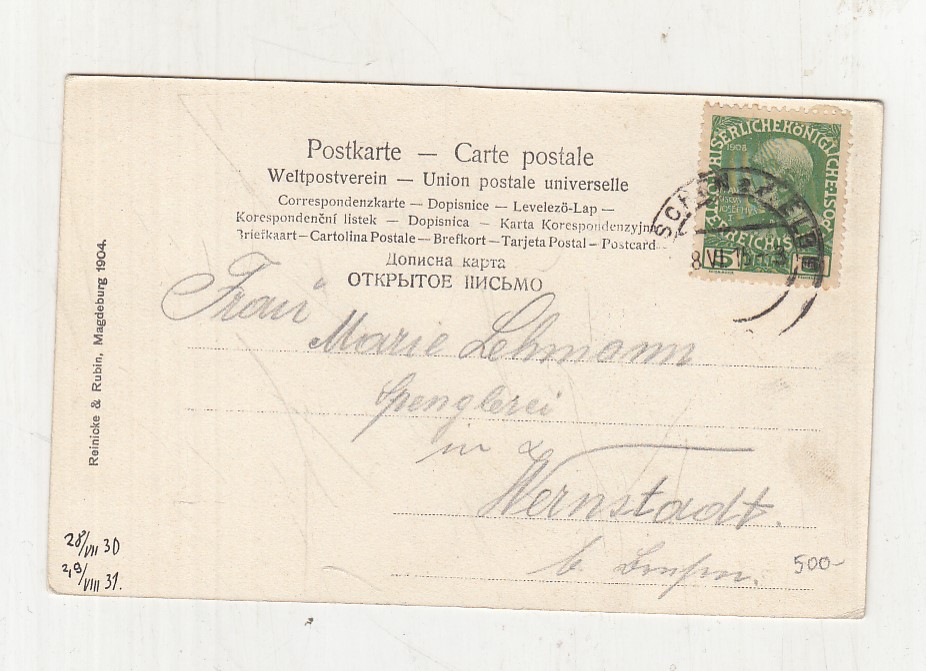 Postkarte — Carte postale
Weltpostverein — Union postale universelle
Correspondenzkarte — Dopisnice — Levelező-Lap —
Korespondenční listek — Dopisnica — Karta Korespondenzyjna
Briefkaart—Cartolina Postale—Brefkort—Tarjeta Postal—Postcard
Дописна карта
ОТКРЫТОЕ ПИСЬМО
1908
5
8 VI
Frau
Marie Lehmann
Spenglerei
in
Wernstadt.
b.
500-
Reinicke & Rubin, Magdeburg 1904.
28/VII 30
2,9/VIII 31.